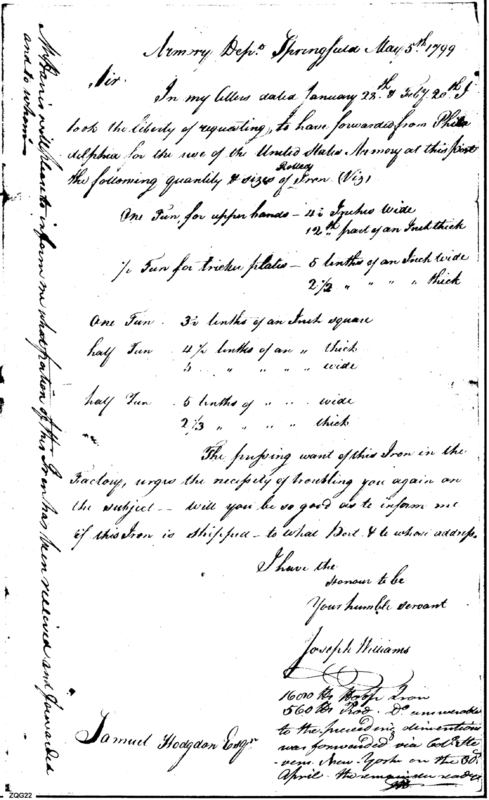 Armory Depo. Springfield May 5th 1799
Sir.
In my letters dated January 22th & Feby 20th I
took the liberty of requesting, to have forwarded from Phila
delphia for the use of the United States Armory at this post
Rolled
the following quantity & sizes of Iron (Viz)
One Tun for upper bands - 4½ Inches wide
12th part of an Inch thick
½ Tun for tricker plates - 5 tenths of an Inch wide
2⅓ " " " " thick
One Tun 3½ tenths of an Inch square
half Tun 4½ tenths of an " thick
" " " " wide
half Tun 5 tenths of " " wide
2⅓ " " " thick
The pressing want of this Iron in the
Factory, urges the necessity of troubling you again on
the subject - will you be so good as to inform me
if this Iron is shipped - to what Port & to whose address.
I have the
Honour to be
Your humble servant
Joseph Williams
Samuel Hodgdon Esqr
1600 lbs Hoop Iron
560 lbs Rod Do answerable
to the preceeding dimentions
was forwarded via Colo. Ste
vens New York on the
April - the remainder
Mr Harris will please to inform me what portion of this Iron has been received and forwarded
and to whom
ZQG22